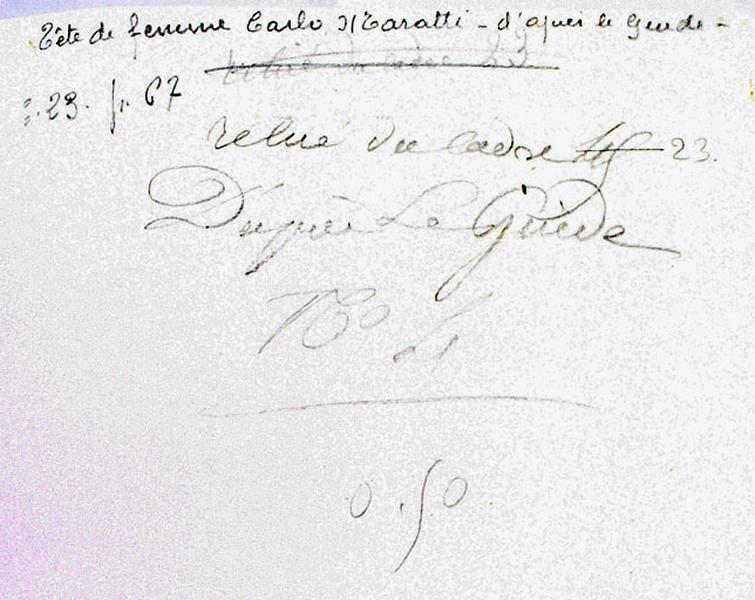 Tête de femme Carlo Maratti - d'après le Guide -
retiré du cadre 23
23. p. 67
retiré du cadre 23.
D'après Le Guide
No 4
0.50